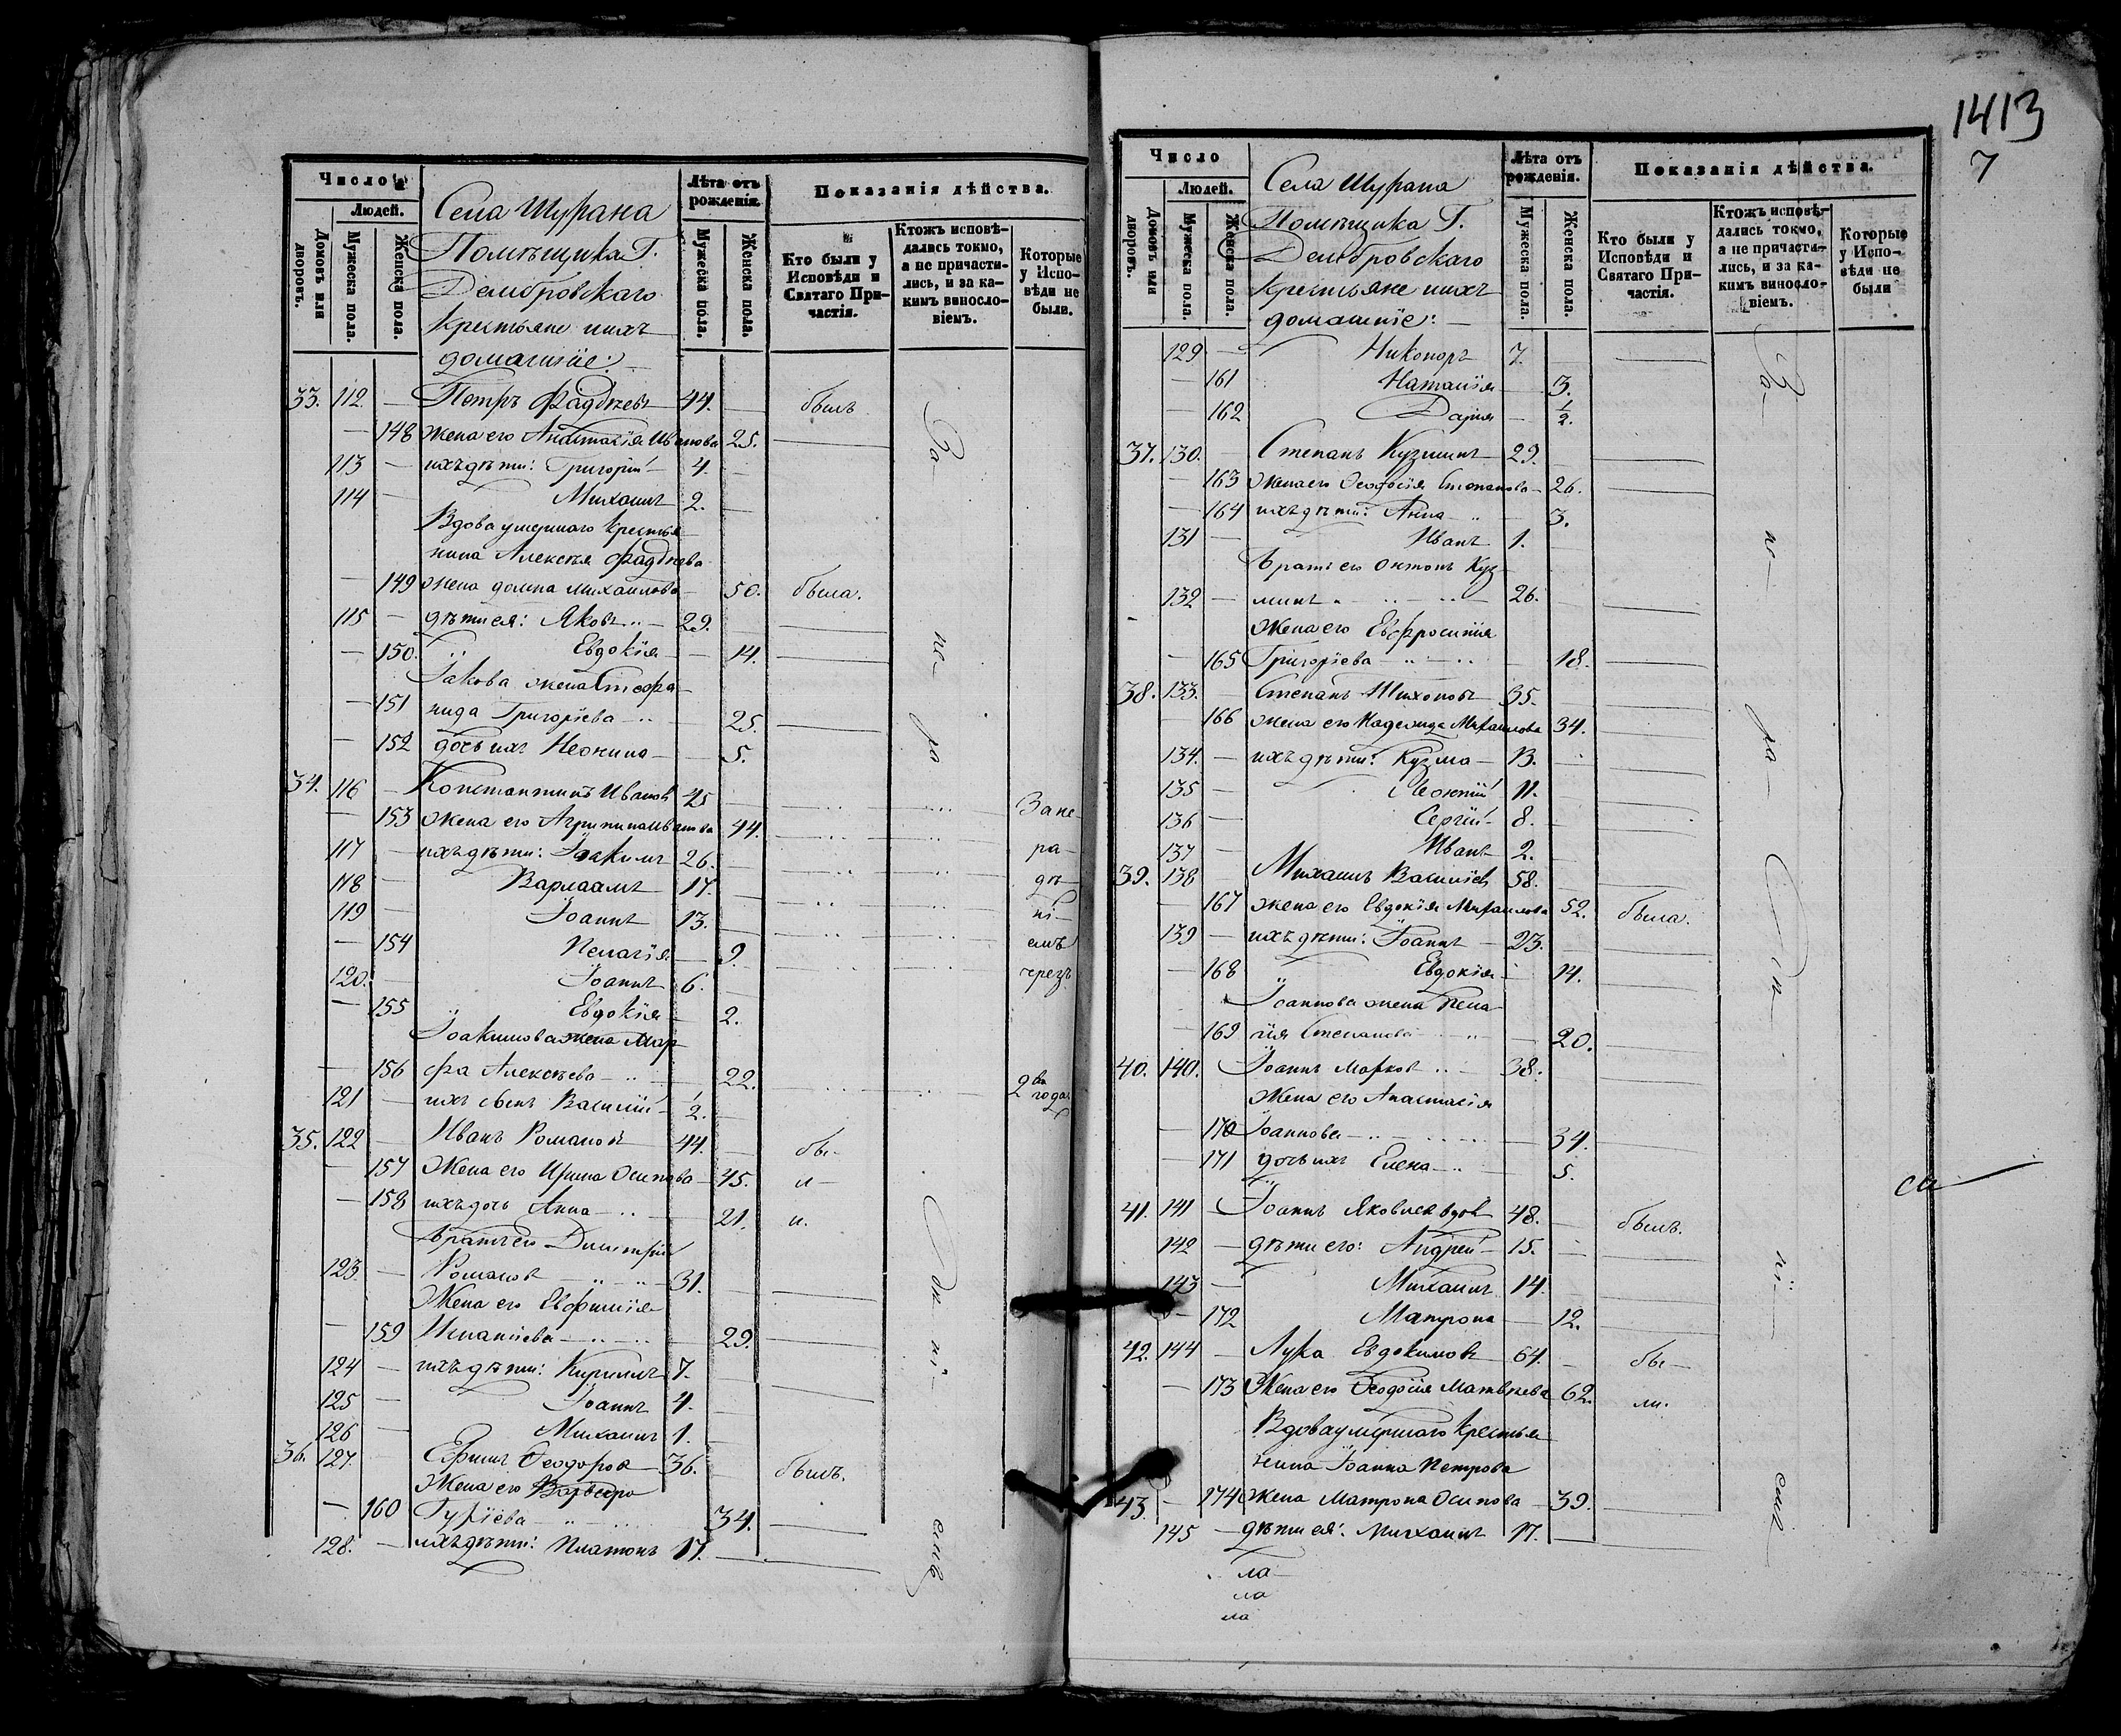 Число
Людей.
Домовъ или дворовъ.
Мужеска пола.
Женска пола.
Села Шурана
Помѣщика Г.
Дембровскаго
Крестьяне и ихъ
домашніе:
Лѣта отъ рожденія.
Мужеска пола.
Женска пола.
Показанія дѣйства.
Кто были у Исповѣди и Святаго Причастія.
Ктожъ исповѣдались токмо, а не причастились, и за какимъ винословіемъ.
Которые у Исповѣди не были.
33. 112 — Петръ Фадѣевъ 44. — былъ
— 148 жена его Анастасія Иванова 25.
113 — ихъ дѣти: Григорій 4.
114 — Михаилъ 2.
Вдова умершаго крестья-
нина Алексѣя Фадѣева
— 149 жена Домна Михаилова — 50. была.
115 — дѣти ея: Яковъ 29.
— 150. Евдокія — 14.
Іакова жена Стефа-
— 151 нида Григоріева 25.
— 152 дочь ихъ Неонила — 5.
34. 116 — Константинъ Ивановъ 45
— 153 жена его Агрипина Иванова 44.
117 — ихъ дѣти: Іоакимъ 26.
118 — Варлаамъ 17.
119 — Іоаннъ 13.
— 154 Пелагія — 9.
120. — Іоаннъ 6.
— 155 Евдокія — 2.
Іоакимова жена Мар-
— 156 фа Алексѣева — 22.
121 — ихъ сынъ Василій 1/2.
35. 122 — Иванъ Романовъ 44. — бы-
— 157 жена его Ирина Осипова 45. л-
— 158 ихъ дочь Анна 21. и.
Братъ его Димитрій
123 — Романовъ 31.
Жена его Евфимія
— 159 Игнатіева — 29.
124 — ихъ дѣти: Кириллъ 7.
125 — Іоаннъ 4.
126 — Михаилъ 1.
36. 127. — Ефимъ Ѳеодоровъ 36. былъ.
Жена его Варвара
— 160 Гуріева — 34.
128. — ихъ дѣти: Платонъ 17.
За-
не-
ра-
дѣ-
ні-
емъ
Зане-
ра-
дѣ-
ні-
емъ
чрезъ
2ва
года
1413
7
Число
Людей.
Домовъ или дворовъ.
Мужеска пола.
Женска пола.
Села Шурана
Помѣщика Г.
Дембровскаго
Крестьяне и ихъ
домашніе:
Лѣта отъ рожденія.
Мужеска пола.
Женска пола.
Показанія дѣйства.
Кто были у Исповѣди и Святаго Причастія.
Ктожъ исповѣдались токмо, а не причастились, и за какимъ винословіемъ.
Которые у Исповѣди не были
129 — Никоноръ 7.
— 161 Наталія — 3.
— 162 Дарія — 1/2.
37. 130. Степанъ Кузминъ 29.
— 163 жена его Ѳеодосія Степанова — 26.
— 164 ихъ дѣти: Анна — 3.
131 — Иванъ 1.
Братъ его Антонъ Куз-
132 — минъ 26.
Жена его Евфросинія
— 165 Григоріева — 18.
38. 133. — Степанъ Тихоновъ 35.
— 166 жена его Надежда Михаилова 34.
134. — ихъ дѣти: Кузма 13.
135 — Леонтій 11.
136 — Сергій 8.
137 — Иванъ 2.
39. 138 Михаилъ Василіев 58.
— 167 жена его Евдокія Михаилова 52. была.
139 — ихъ дѣти: Іоаннъ — 23.
— 168 Евдокія — 14.
Іоаннова жена Пела-
— 169 гія Степанова — 20.
40. 140. Іоаннъ Марковъ 38.
Жена его Анастасія
— 170 Іоаннова — 34.
— 171 дочь ихъ Елена — 5.
41. 141 Іоаннъ Яковлев вдов 48. — былъ.
142 — дѣти его: Андрей 15.
143 — Михаилъ 14.
— 172 Матрона — 12.
42. 144 — Лука Евдокимовъ 64. — бы-
— 173 Жена его Ѳеодосія Матвѣева 62. ли.
Вдова умершаго крестья-
нина Іоанна Петрова
43. — 174 жена Матрона Осипова — 39.
145 — дѣти ея: Михаилъ 17.
За-
не-
ра-
дѣ-
ні-
емъ
ла
ла
ла